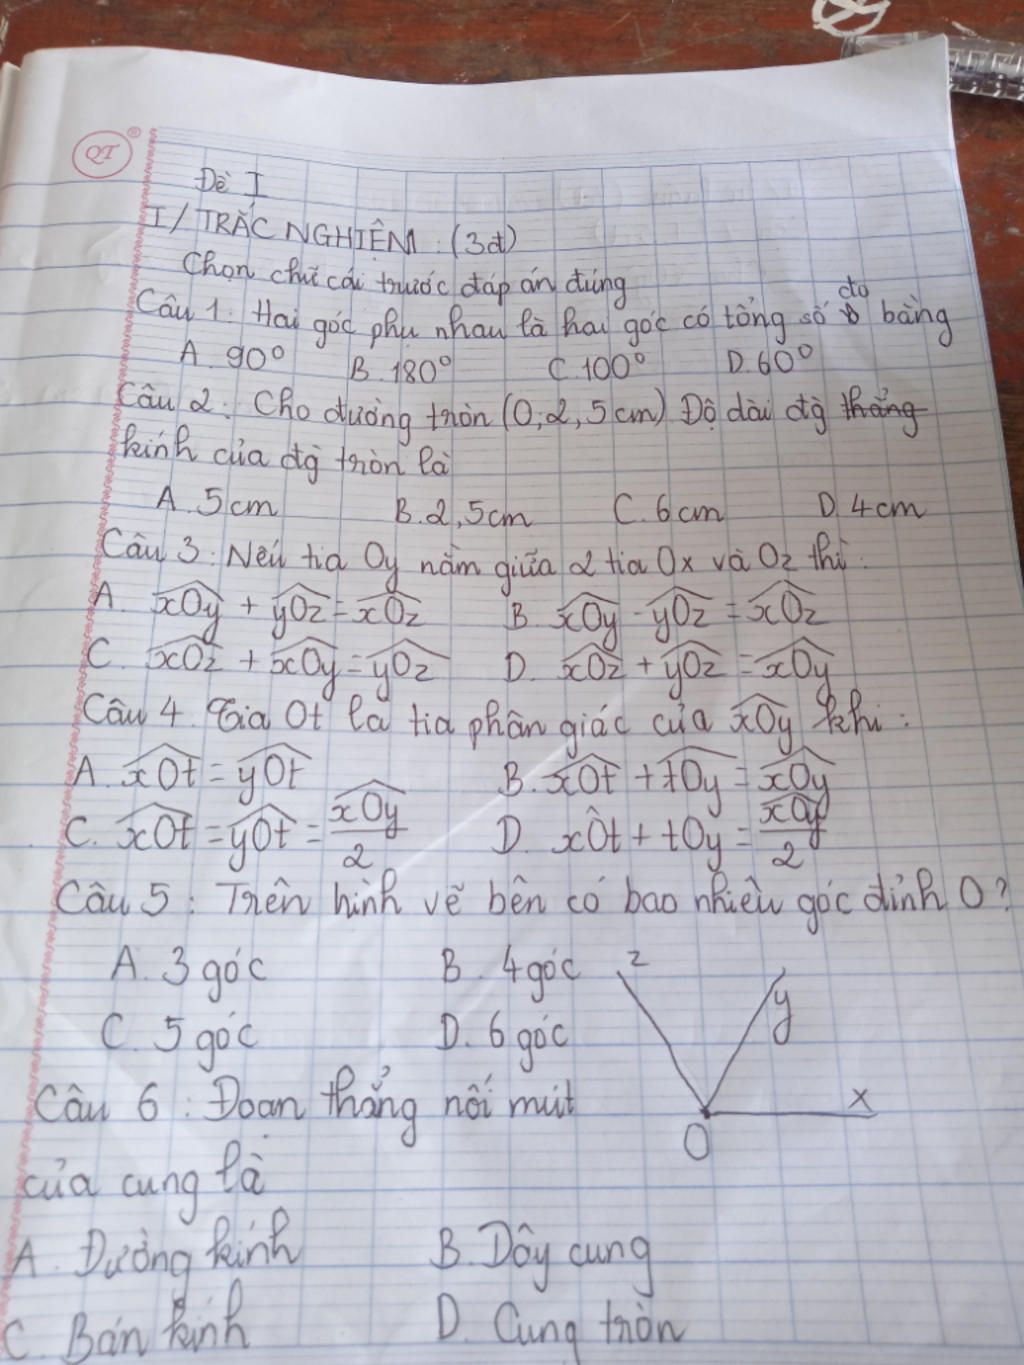 QT
Đề I
I/ TRẮC NGHIỆM: (3đ)
Chọn chữ cái trước đáp án đúng
Câu 1: Hai góc phụ nhau là hai góc có tổng số đo bằng
A. 90° B. 180° C. 100° D. 60°
Câu 2: Cho đường tròn (O; 2,5cm) Độ dài đg thẳng
kính của đg tròn là
A. 5cm B. 2,5cm C. 6cm D. 4cm
Câu 3: Nếu tia Oy nằm giữa 2 tia Ox và Oz thì:
A. xOy + yOz = xOz B. xOy - yOz = xOz
C. xOz + xOy = yOz D. xOz + yOz = xOy
Câu 4. Tia Ot là tia phân giác của xOy khi:
A. xOt = yOt B. xOt + tOy = xOy
C. xOt = yOt = xOy/2 D. xÔt + tOy = xOy/2
Câu 5: Trên hình vẽ bên có bao nhiêu góc đỉnh O?
A. 3 góc B. 4 góc z
C. 5 góc D. 6 góc y
Câu 6: Đoạn thẳng nối mút x
O
của cung là
A. Đường kính B. Dây cung
C. Bán kính D. Cung tròn